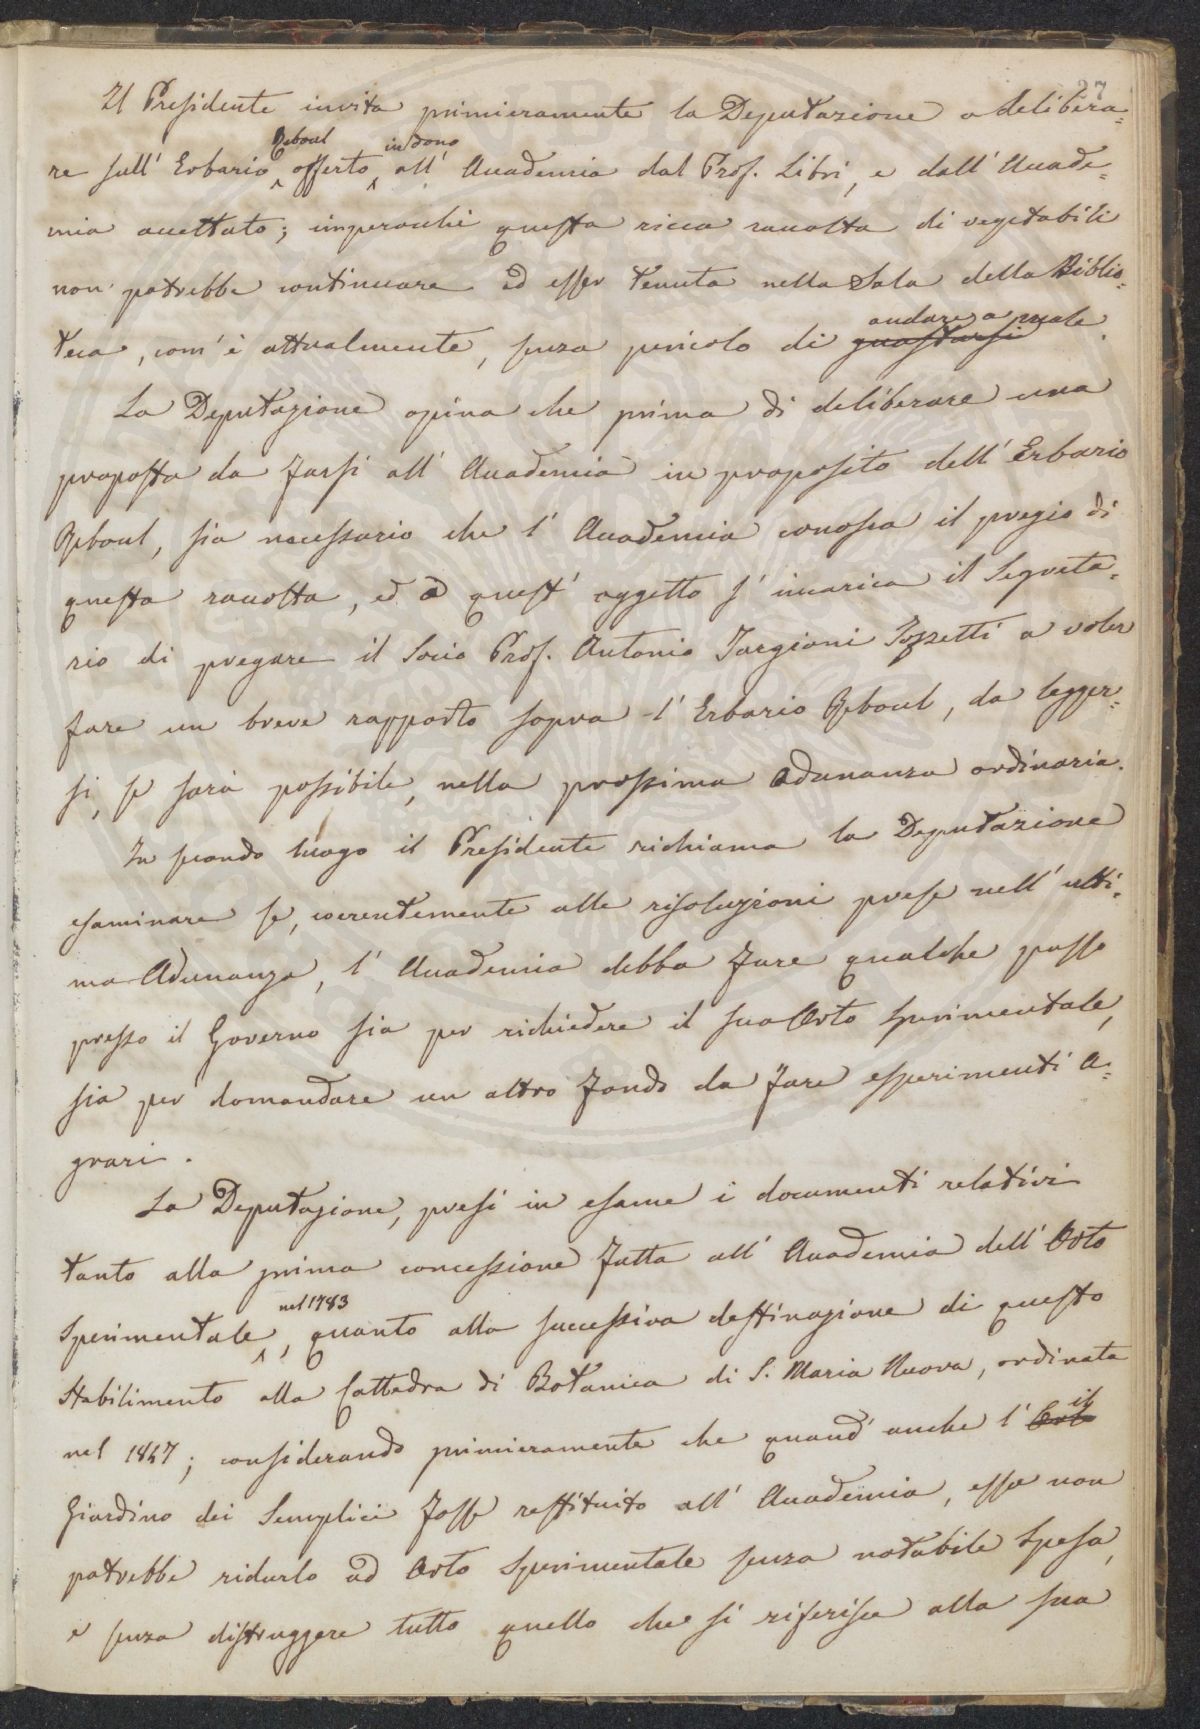 27
Il Presidente invita primieramente la Deputazione a delibera=
re sull' Erbario Reboul offerto in dono all' Accademia dal Prof. Libri, e dall' Accade=
mia accettato; imperocchè questa ricca raccolta di vegetabili
non potrebbe continuare ad esser tenuta nella Sala della Biblio=
teca, com' è attualmente, senza pericolo di guastarsi andare a male.
La Deputazione opina che prima di deliberare una
proposta da farsi all' Accademia in proposito dell' Erbario
Reboul, sia necessario che l' Accademia conosca il pregio di
questa raccolta, ed a quest' oggetto s' incarica il Segreta=
rio di pregare il Socio Prof. Antonio Targioni Tozzetti a voler
fare un breve rapporto sopra l' Erbario Reboul, da legger=
si, se sarà possibile, nella prossima adunanza ordinaria.
In secondo luogo il Presidente richiama la Deputazione
esaminare se, coerentemente alle risoluzioni prese nell' ulti=
ma Adunanza, l' Accademia debba fare qualche passo
presso il Governo sia per richiedere il suo Orto Sperimentale,
sia per domandare un altro fondo da fare esperimenti a=
grari.
La Deputazione, presi in esame i documenti relativi
tanto alla prima concessione fatta all' Accademia dell' Orto
Sperimentale nel 1783, quanto alla successiva destinazione di questo
Stabilimento alla Cattedra di Botanica di S. Maria Nuova, ordinata
nel 1847; considerando primieramente che quand' anche l' Orto il
Giardino dei Semplici fosse restituito all' Accademia, essa non
potrebbe ridurlo ad Orto Sperimentale senza notabile spesa,
e senza distruggere tutto quello che si riferisce alla sua